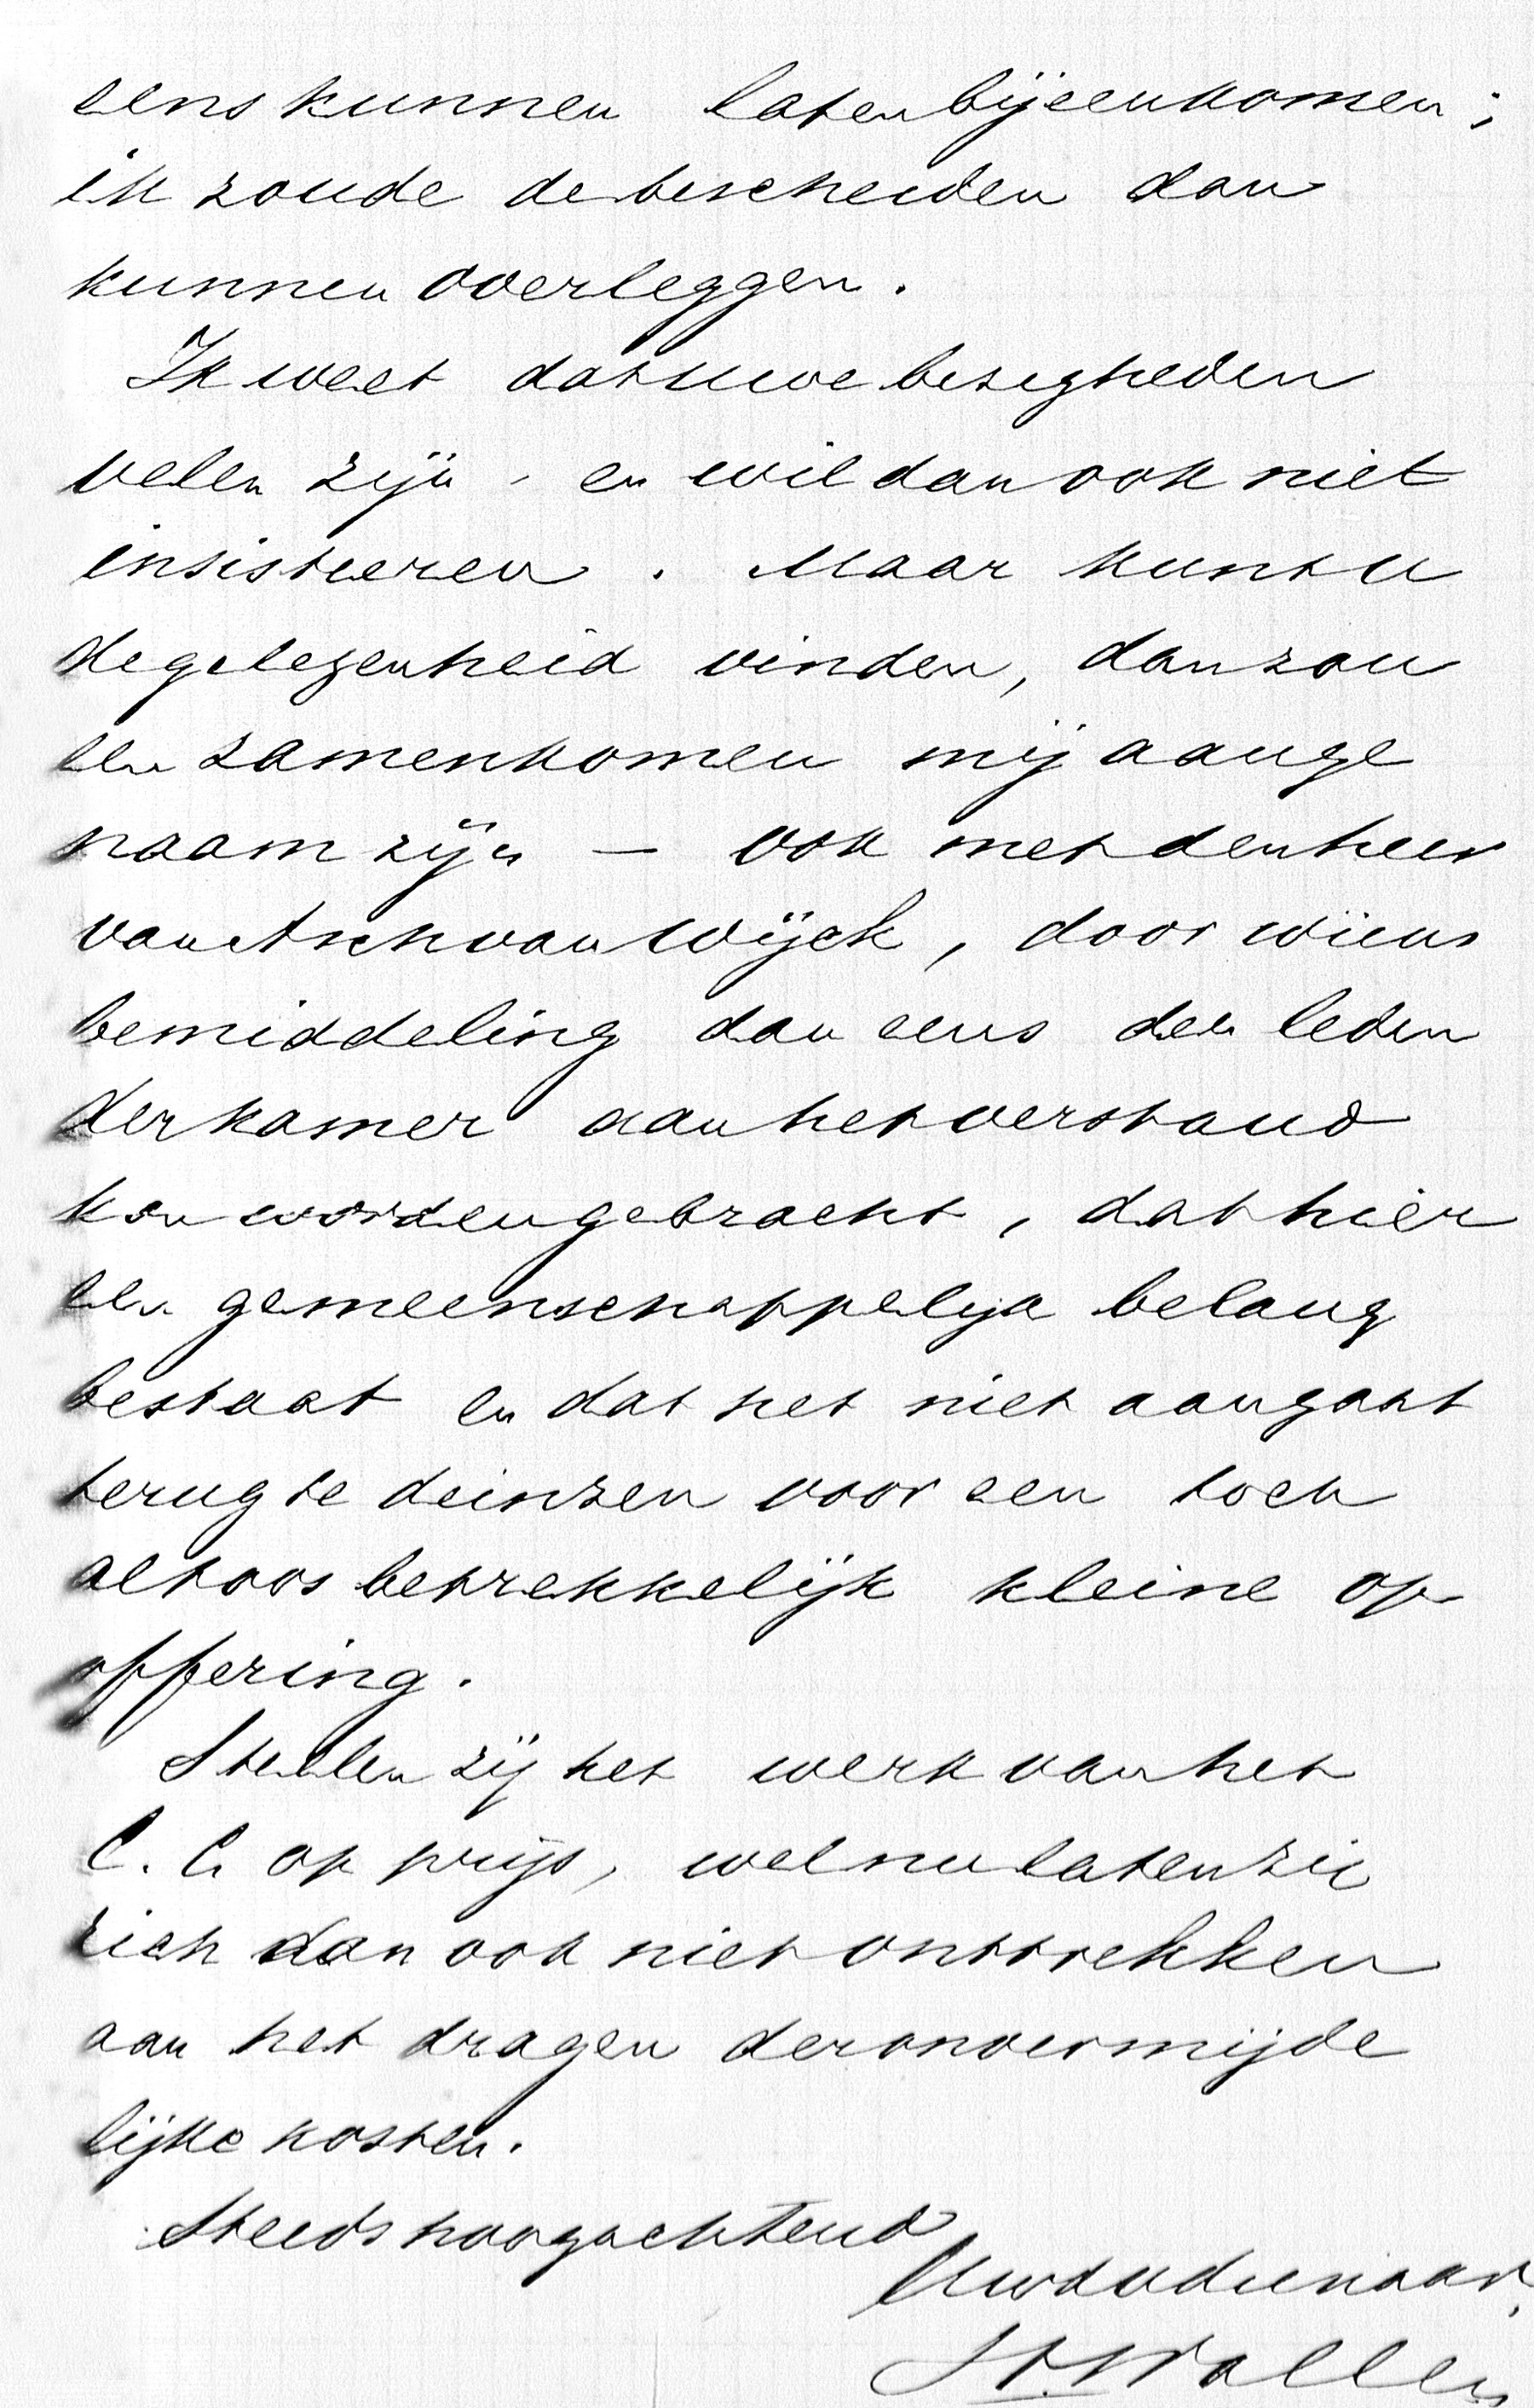 eens kunnen laten bijeenkomen;
ik zoude de bescheiden dan
kunnen overleggen.
Ik weet dat uwe bezigheden
velen zijn, en wil dan ook niet
insisteeren. Maar kunt u
de gelegenheid vinden, dan zou
een zamenkomen mij aange
naam zijn — ook met den heer
van Asch van Wijck, door wiens
bemiddeling dan eens den leden
der kamer aan het verstand
kon worden gebracht, dat hier
een gemeenschappelijk belang
bestaat en dat het niet aangaat
terug te deinzen voor een toch
altoos betrekkelijk kleine op
offering.
Stellen zij het werk van het
C. C. op prijs, welnu laten zij
zich dan ook niet onttrekken
aan het dragen der onvermijde
lijke kosten.
Steeds hoogachtend
Uwdvdienaar,